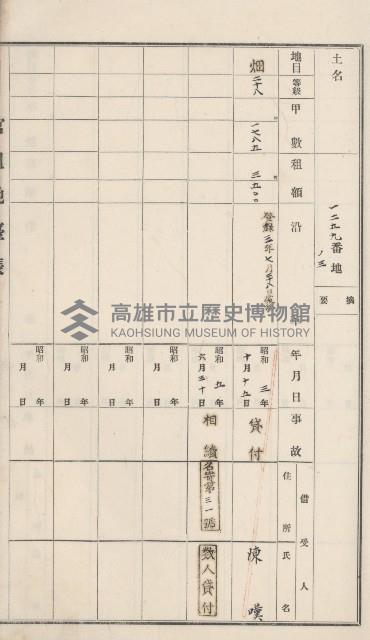 土名
一二五九番地ノ三
摘要
地目
等級
甲數
租額
沿革
年月日
事故
借受人
住所
氏名
畑
二十八
一七八五
三五〇〇
昭和三年十月十五日
貸付
陳嘆
昭和五年六月三十日
相續
名寄第三一號
數人貸付
昭和 年 月 日
昭和 年 月 日
昭和 年 月 日
昭和 年 月 日
高雄市立歷史博物館
KAOHSIUNG MUSEUM OF HISTORY